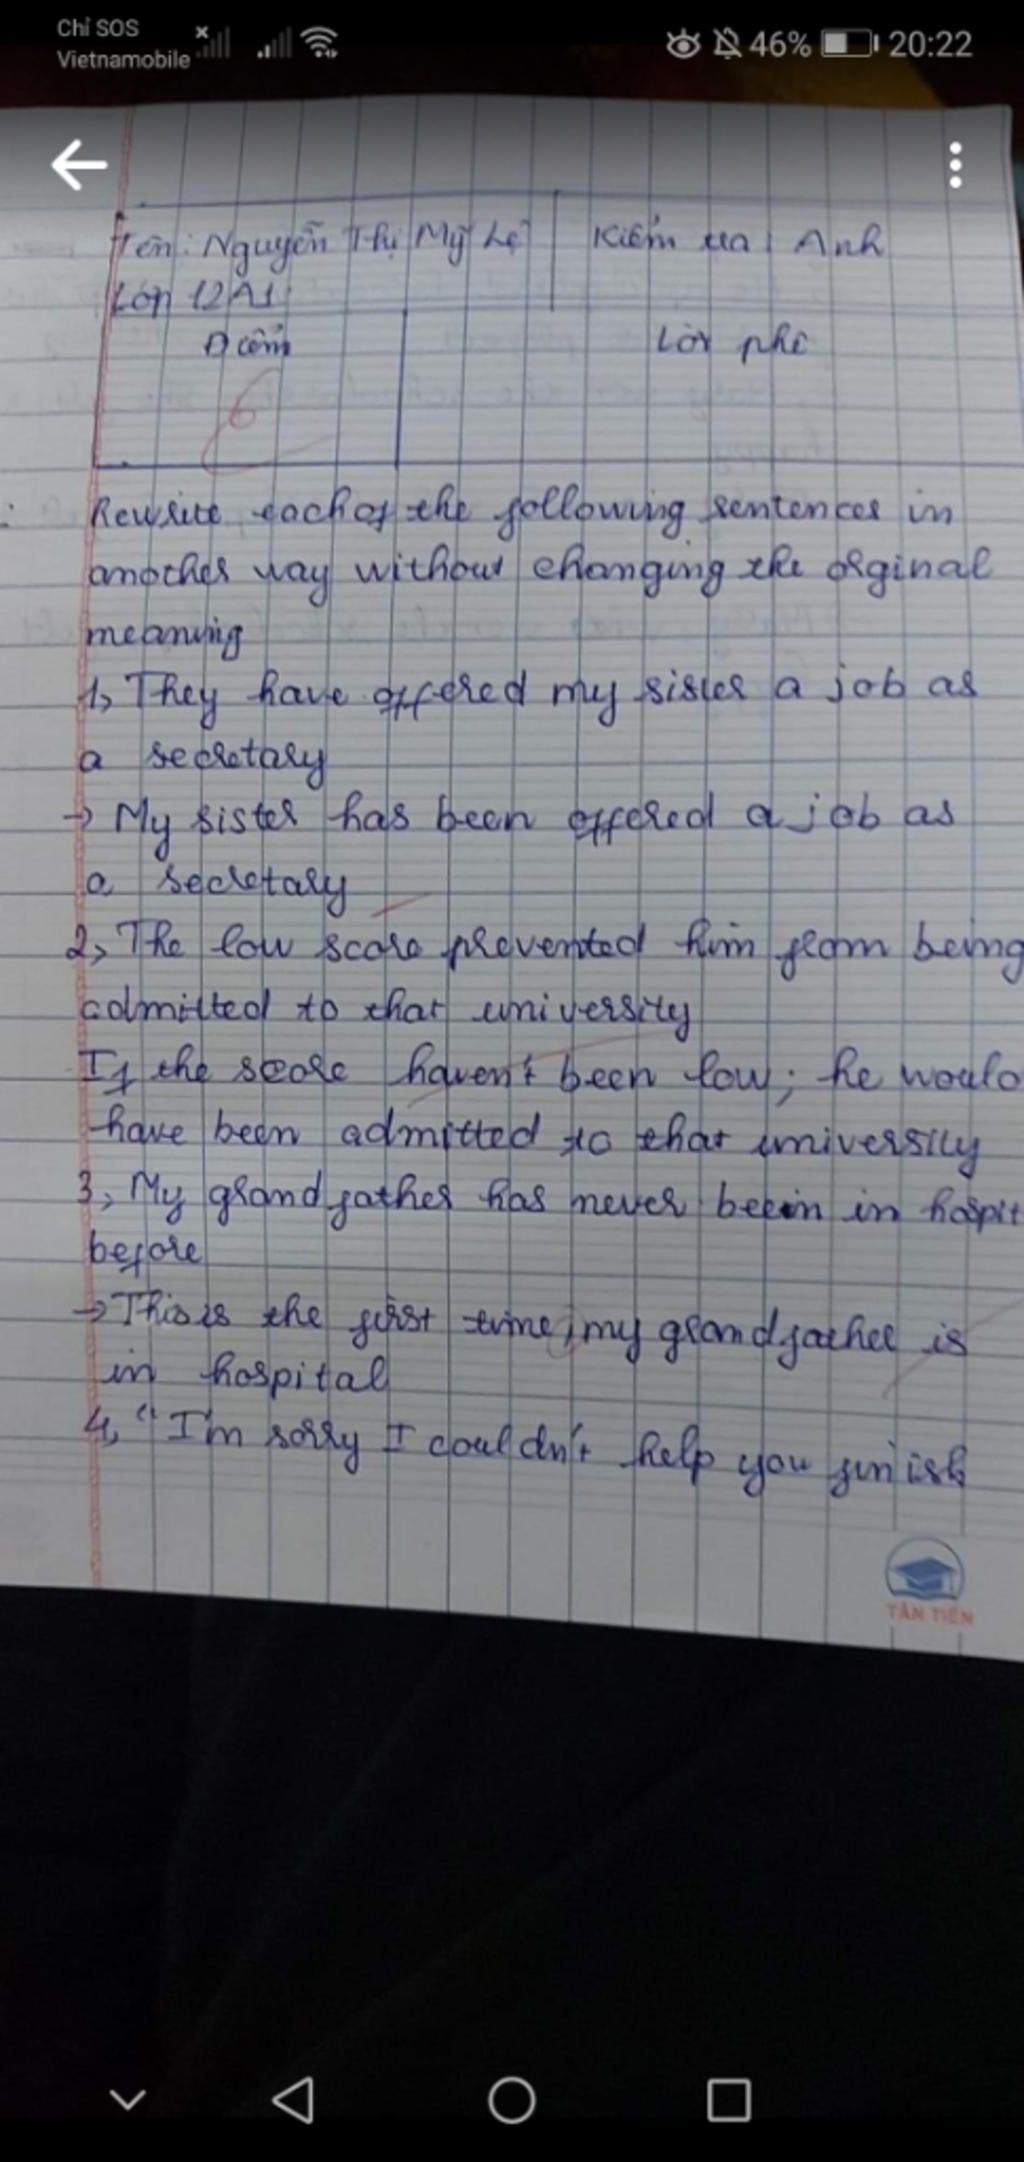 Chỉ SOS
Vietnamobile
46% 20:22
Tên: Nguyễn Thị Mỹ Lệ Kiểm tra Anh
Lớp 12A1
Điểm Lời phê
6
Rewrite each of the following sentences in
another way without changing the orginal
meaning
1, They have offered my sister a job as
a secretary
→ My sister has been offered a job as
a secretary
2, The low score prevented him from being
admitted to that university
If the score haven't been low; he would
have been admitted to that university
3, My grandfather has never beein in hospit
before
→ This is the first time, my grandfather is
in hospital
4, "I'm sorry I couldn't help you finish
TÂN TIẾN